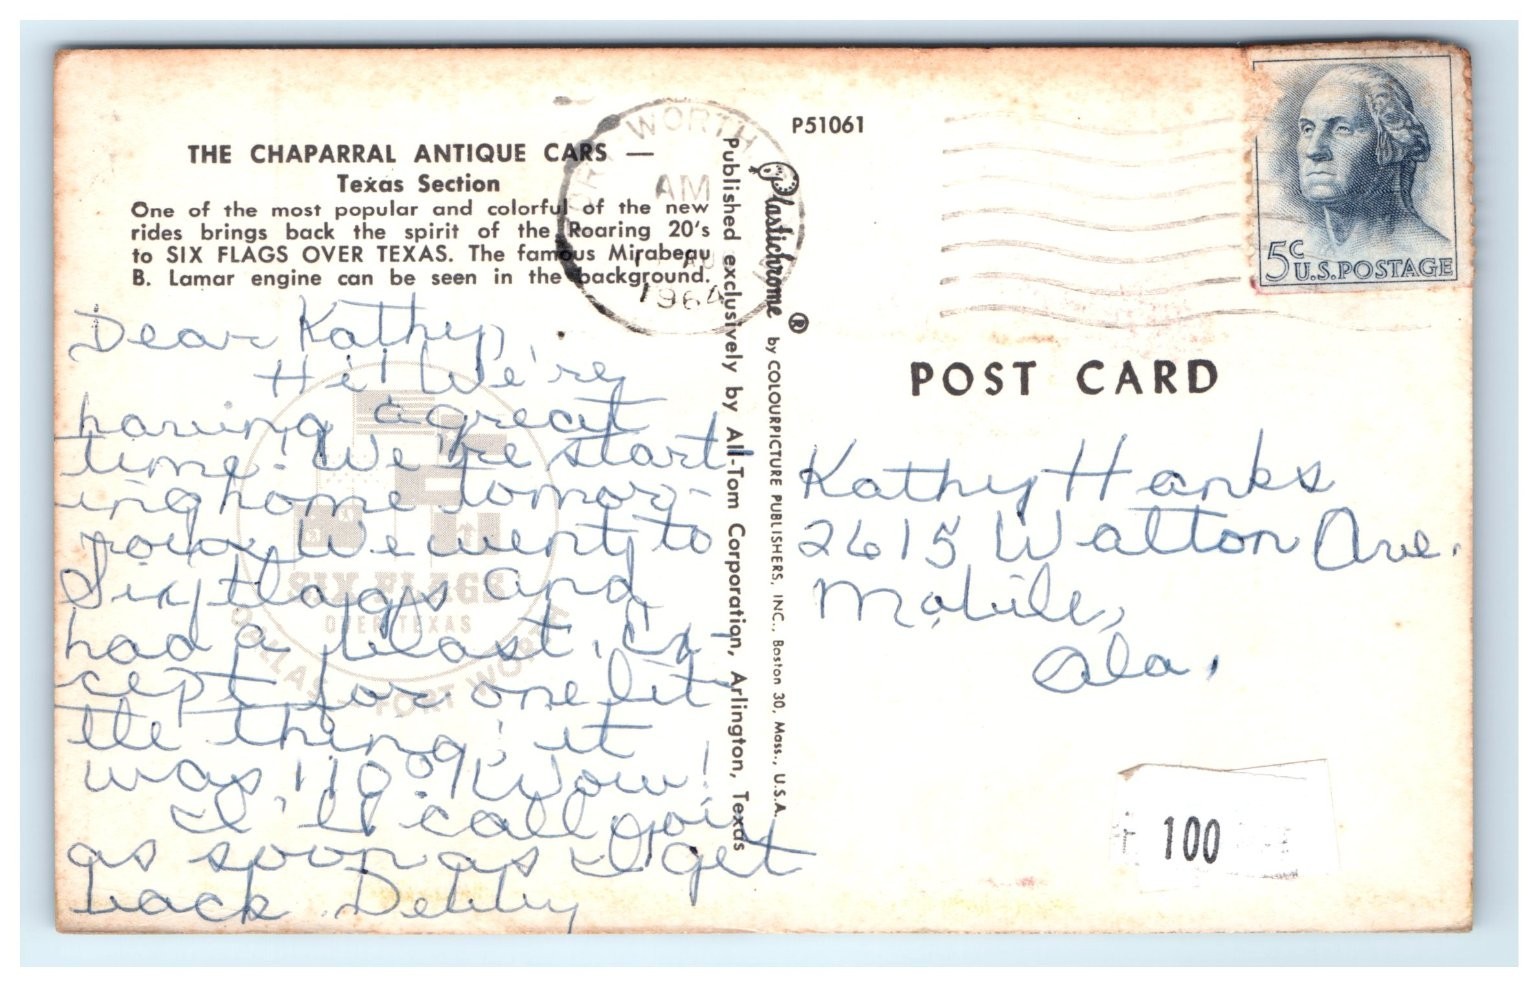 THE CHAPARRAL ANTIQUE CARS —
Texas Section
One of the most popular and colorful of the new
rides brings back the spirit of the Roaring 20's
to SIX FLAGS OVER TEXAS. The famous Mirabeau
B. Lamar engine can be seen in the background.
Dear Kathy,
Hi! We're
having a great
time. We're start-
ing home tomor-
row. We went to
Six Flags and
had a blast, ex-
cept for one lit-
tle thing, it
was 110°! Wow!
I'll call you
as soon as I get
back. Debby
SIX FLAGS
OVER TEXAS
DALLAS FORT WORTH
WORTH
AM
1964
Published exclusively by All-Tom Corporation, Arlington, Texas
Plastichrome ® by COLOURPICTURE PUBLISHERS, INC., Boston 30, Mass., U.S.A.
P51061
5c U.S.POSTAGE
POST CARD
Kathy Hanks
2615 Walton Ave.
Mobile,
Ala.
100